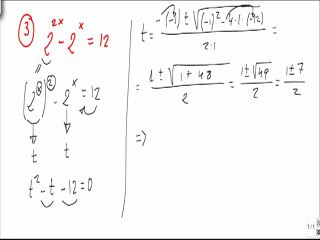 ③ 2^{2x} - 2^x = 12
(2^x)^2 - 2^x = 12
t t
t^2 - t - 12 = 0
t = \frac{-(-1) ± \sqrt{(-1)^2 - 4·1·(-12)}}{2·1} =
= \frac{1 ± \sqrt{1 + 48}}{2} = \frac{1 ± \sqrt{49}}{2} = \frac{1 ± 7}{2}
⇒